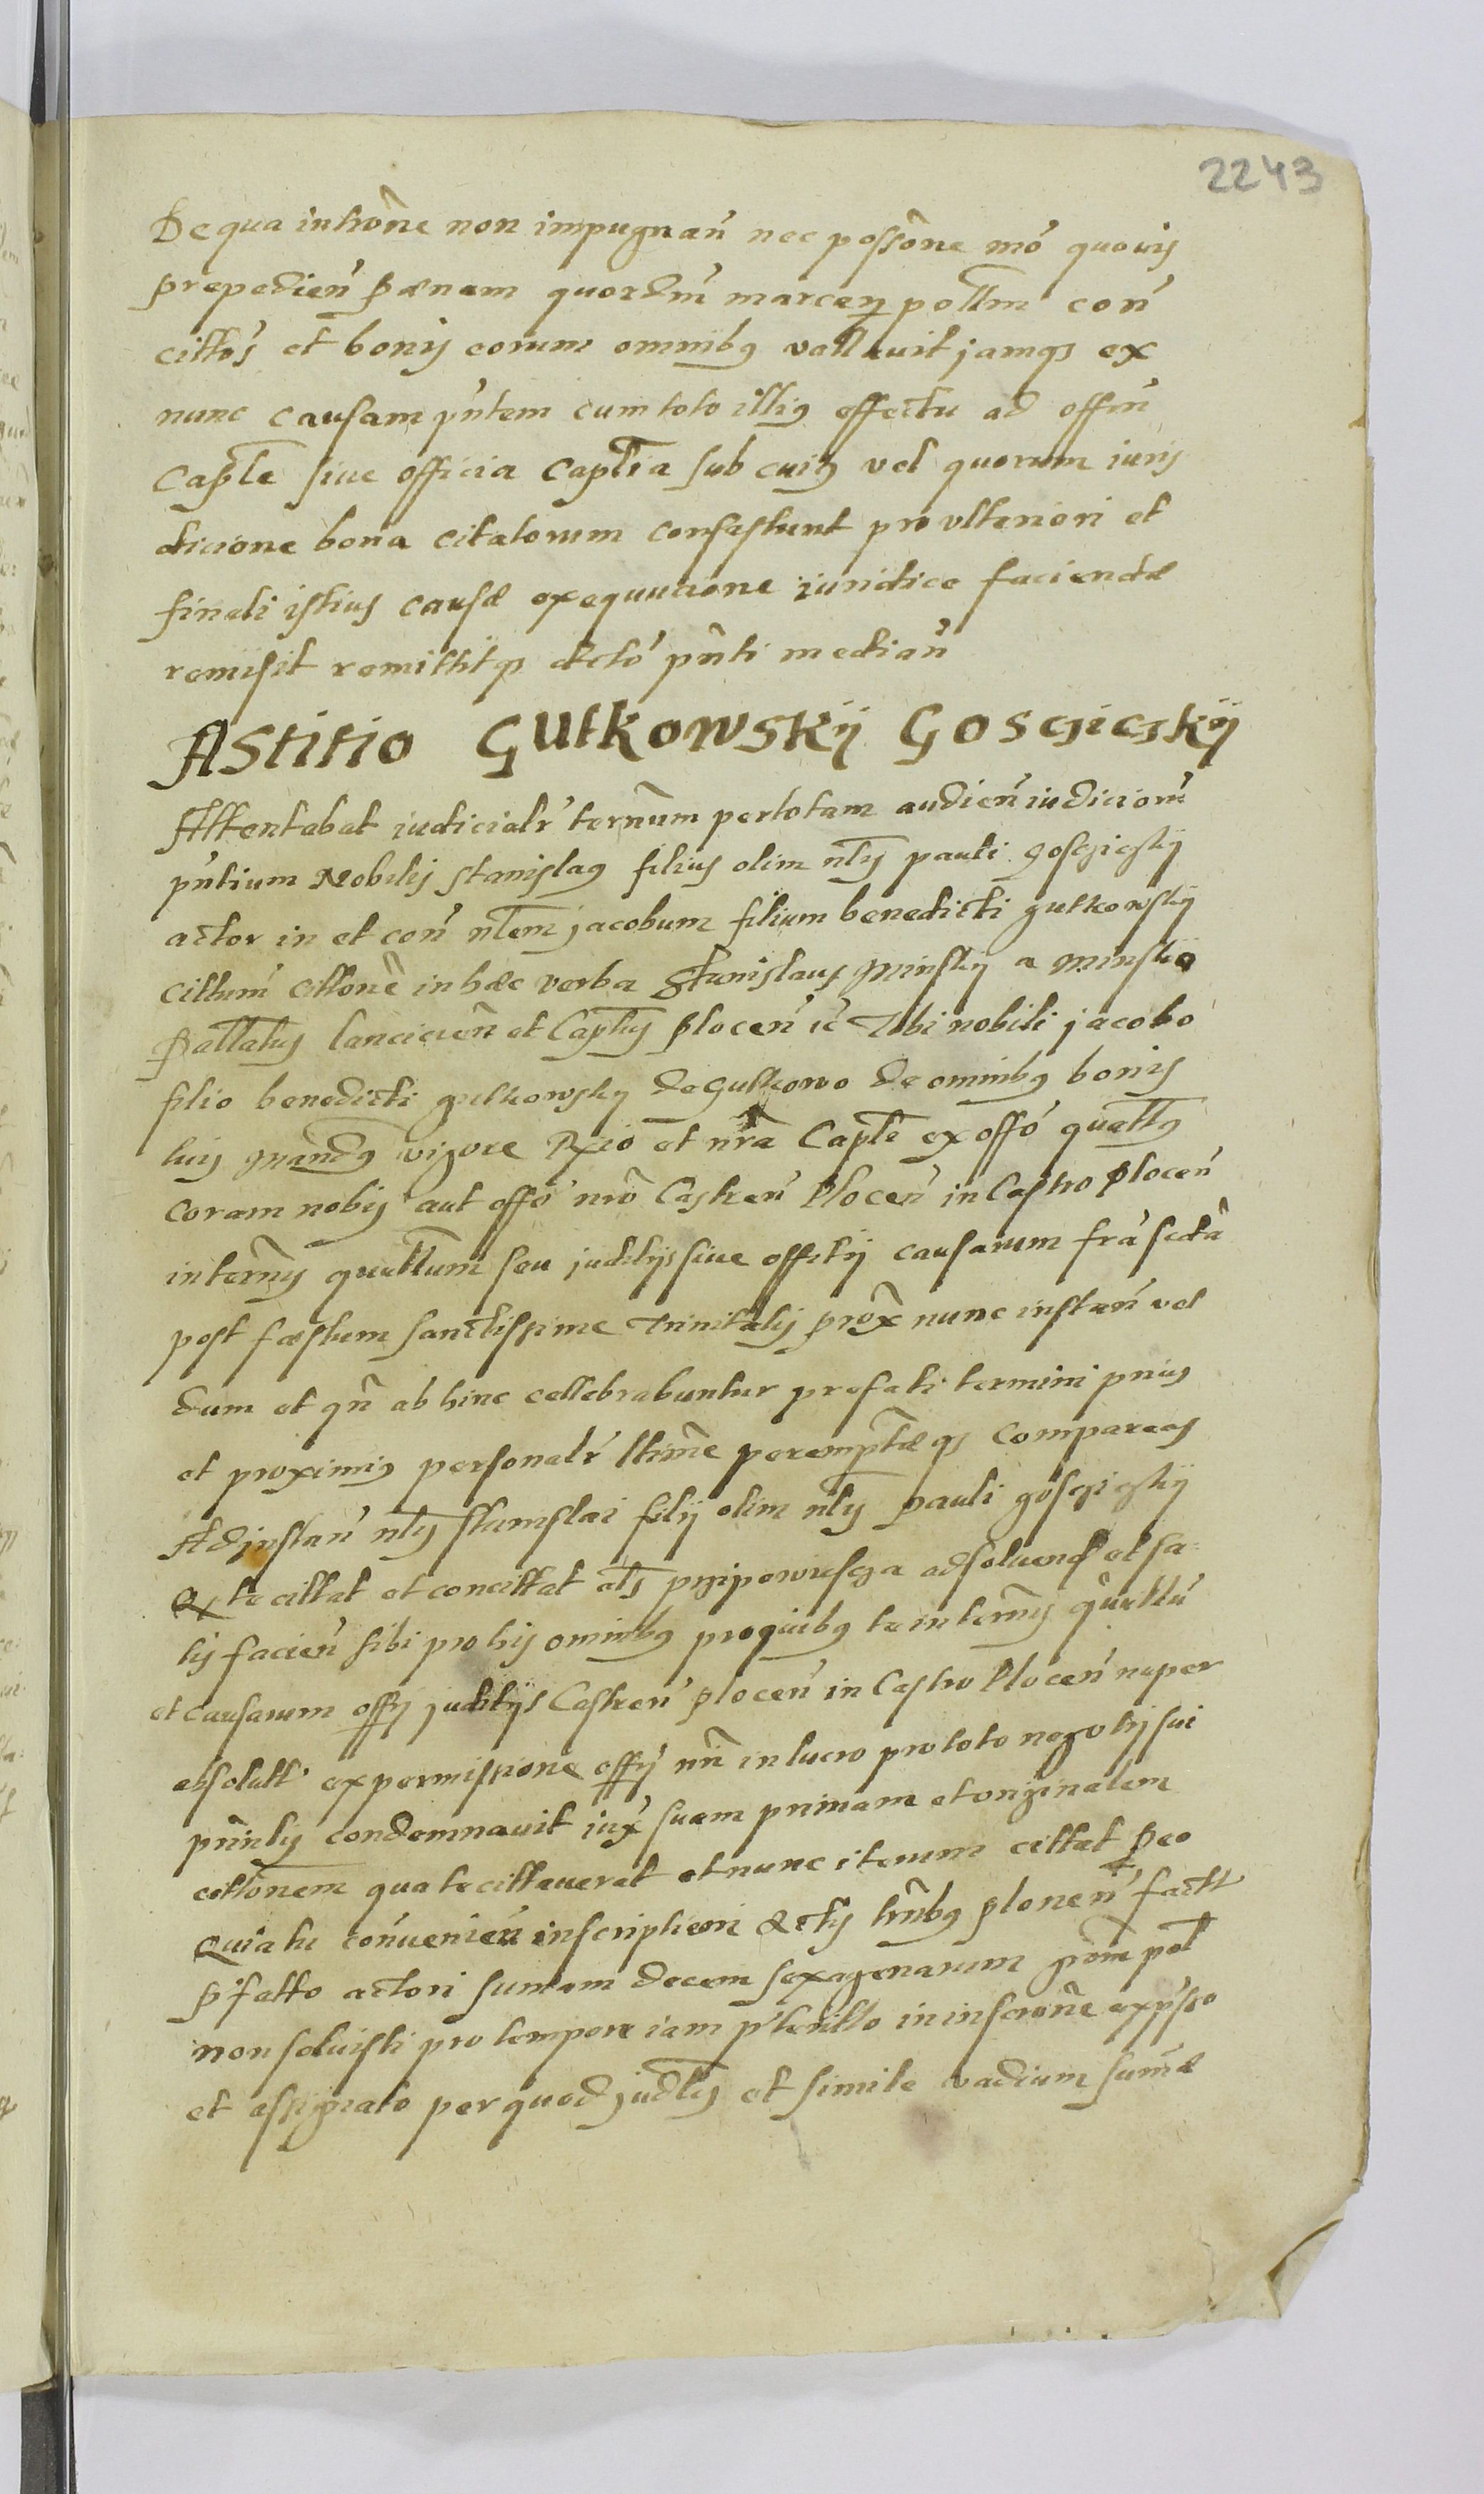 2243
De qua introne non impugnan nec possone mo quouis
prepedien pænam quordm marcarz poll'm con
cittos et bonis eorum omnibus vallauit jamq3 ex
nunc causam pntem cum toto illius effectu ad offm
Capl'e siue officia Capl'ia sub cuius vel quorum iuris
dicione bona citatorum consistunt pro vlteriori et
finali istius causæ exequutione iuridice faciendæ
remisit remittitq3 dcto pnti median
Astitio Gutkowskij Gosciciskij
Attentabat iudicialr termum per totam audien iudiciorum
pntium Nobilis Stanislaus filius olim nl'is pauli gosciciskij
actor in et con nl'em jacobum filium benedicti gutkowskij
cittum cittone in hæc verba Stanislaus Minskij a Minsko
Pallatus lancicien et Capl'us plocen ic Tibi nobili jacobo
filio benedicti gutkowskij de Gutkowo de omnibus bonis
tuis mandus vigore Rxio et nra Capl'e ex offo quatts
coram nobis aut offo nro Castren Plocen in Castro plocen
in termis quertlum seu judicijs siue officij causarum fra scda
post fæstum sanctissime trinitatis prox nunc instan vel
dum et qn ab hinc cellebrabuntur prefati termini prius
et proximius personalr ltime peremptæ q3 compareas
Ad jnstan nl'is stanislai filij olim nl'is pauli gosciciskij
Q te cittat et concittat al's przipowiescza ad soluend et sa:
tis facien sibi pro his omnibus pro quibus te in termis querllu
et causarum offij judicijs Castren plocen in Castro Plocen nuper
absolutt ex permissione offij nri in lucro pro toto negotij sui
pnntis condemnauit iux suam primam et originalem
cittonem qua te cittauerat et nunc iterum cittat Peo
Quia tu conuenien inscriptioni Actis trnbus plonen factt
pfatto actori sumam decem sexagenarum grom pol
non soluisti pro tempore iam pteritto in inscrone exp'sso
et assignato per quod judl'is et simile vadium sumæ